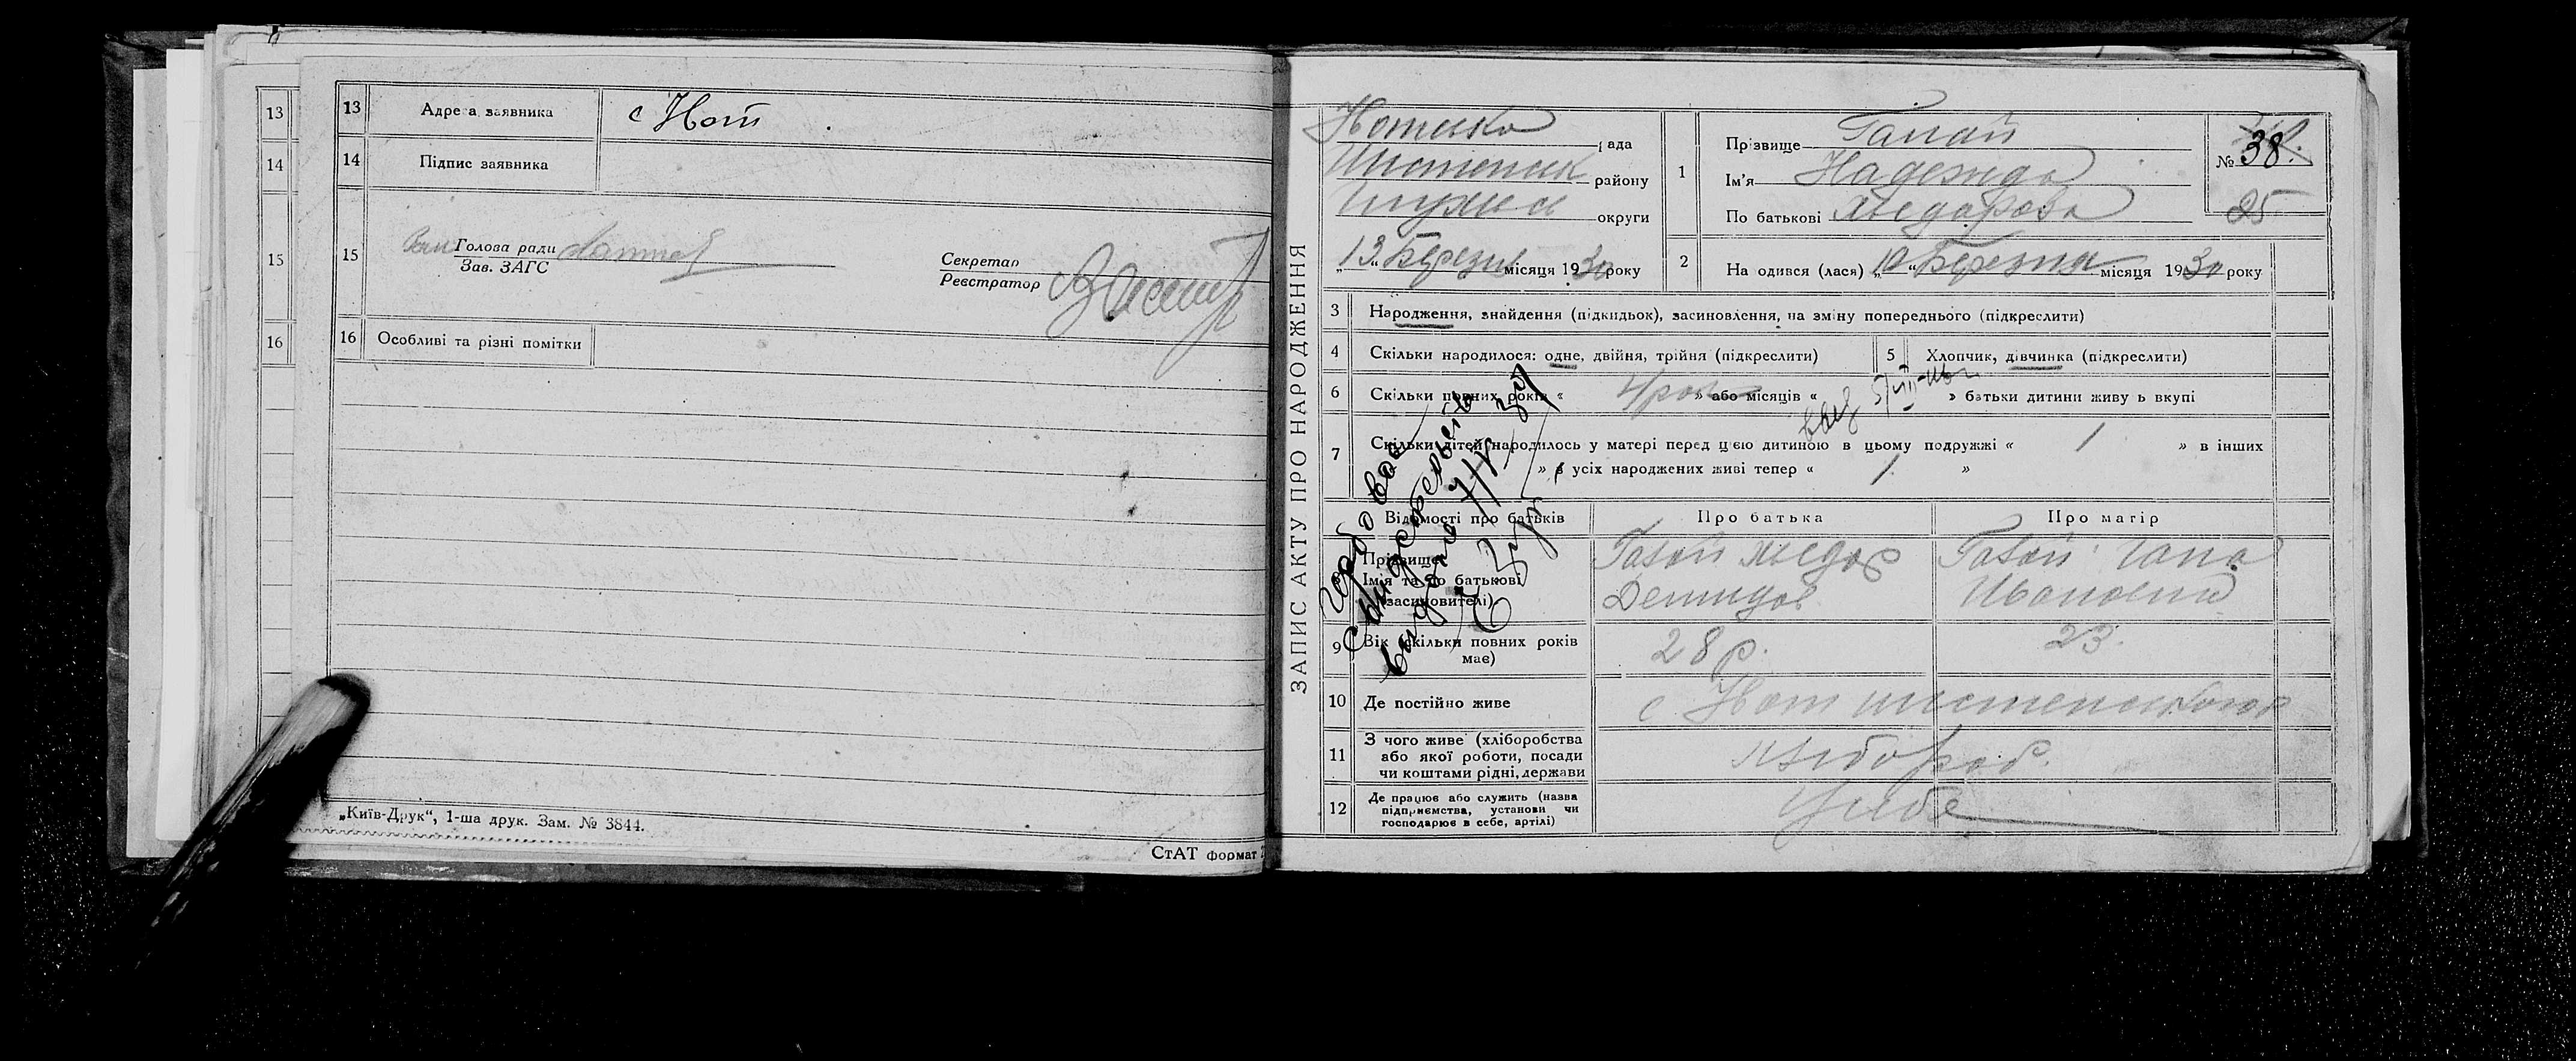 13
14
15
16
13 Адреса заявника с Нот
14 Підпис заявника
15 Голова ради
Зав. ЗАГС
Секретар
Реєстратор
16 Особливі та різні помітки
„Київ-Друк“, 1-ша друк. Зам. № 3844.
СтАТ формат
ЗАПИС АКТУ ПРО НАРОДЖЕННЯ
рада
району
округи
„13“ Березня місяця 1930 року
1 Прізвище Гапай
Ім'я Надежда
По батькові Хведорова
№ 38.
25
2 Народився (лася) „10“ Березня місяця 1930 року
3 Народження, знайдення (підкидьок), засиновлення, на зміну попереднього (підкреслити)
4 Скільки народилося: одне, двійня, трійня (підкреслити)
5 Хлопчик, дівчинка (підкреслити)
6 Скільки повних років « 4 рок » або місяців « » батьки дитини живуть вкупі
7 Скільки дітей народилось у матері перед цією дитиною в цьому подружжі « 1 » в інших
» в усіх народжених живі тепер « 1 »
Відомості про батьків Про батька Про матір
Прізвище
Ім'я та по батькові
(засиновителі)
Гапай Хведор
Демидов
Гапай Гапа
Ивановна
9 Вік (скільки повних років
має) 28 р. 23.
10 Де постійно живе с Нот
11 З чого живе (хліборобства
або якої роботи, посади
чи коштами рідні, держави
хлібороб.
12 Де працює або служить (назва
підприємства, установи чи
господарює в себе, артілі)
У себе